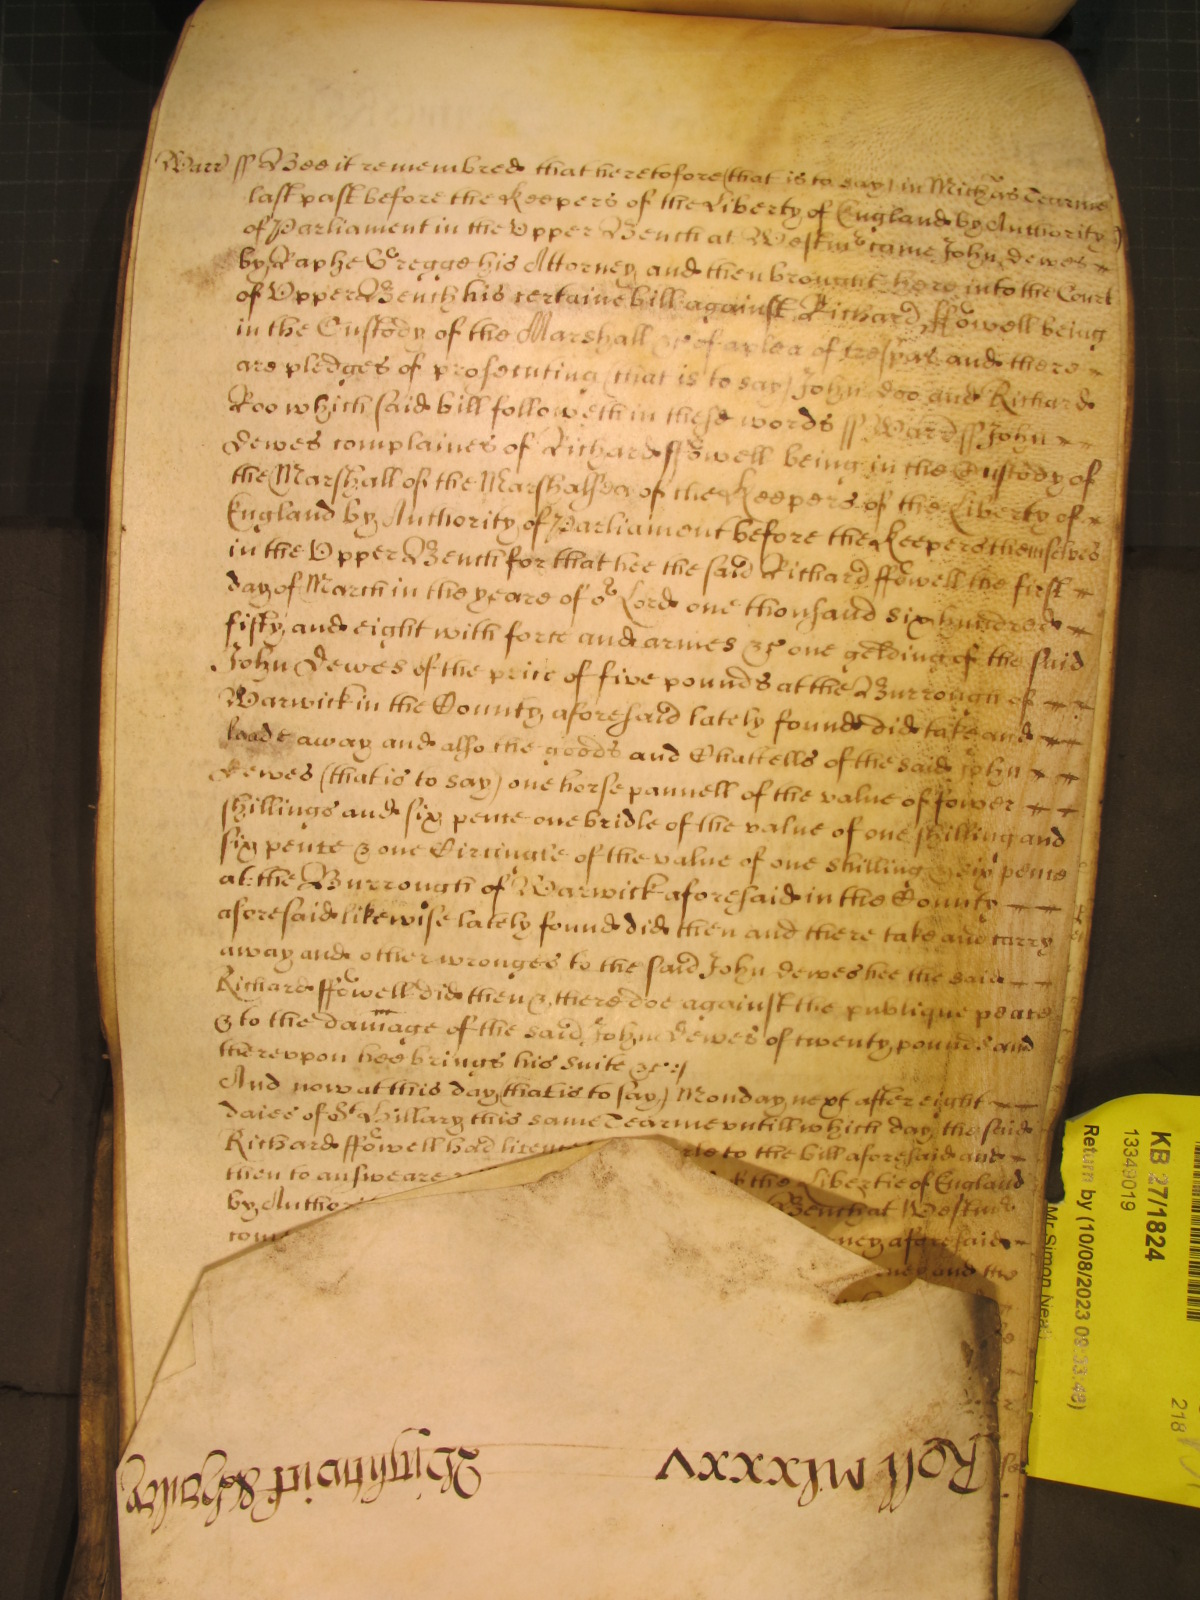 Warr ss Bee it remembred that heretofore (that is to say) in Michas Tearme
last past before the Keepers of the Liberty of England by Authority
of Parliament in the Upper Bench at Westmr came John Dewes
by Raphe Gregge his Attorney and then brought here into the Court
of Upper Bench his certaine bill against Richard ffowell being
in the Custody of the Marshall &c of a plea of trespas and there
are pledges of prosecuting (that is to say) John Doo and Richard
Roo which said bill followeth in these words ss Warr ss John
Dewes complaines of Richard ffowell being in the Custody of
the Marshall of the Marshalsea of the Keepers of the Liberty of
England by Authority of Parliament before the Keepers themselves
in the Upper Bench for that hee the said Richard ffowell the first
day of March in the yeare of or Lord one thousand six hundred
fifty and eight with force and armes &c one gelding of the said
John Dewes of the price of five pounds at the Burrough of
Warwick in the County aforesaid lately found did take and
leade away and also the goods and Chattells of the said John
Dewes (that is to say) one horse pannell of the value of fower
shillings and six pence one bridle of the value of one shilling and
six pence & one Circingle of the value of one shilling & six pence
at the Burrough of Warwick aforesaid in the County
aforesaid likewise lately found did then and there take and carry
away and other wronges to the said John Dewes hee the said
Richard ffowell did then & there doe against the publique peace
& to the damage of the said John Dewes of twenty pounds and
thereupon hee brings his suite &c
And now at this day (that is to say) Monday next after eight
daies of St Hillary this same Tearme untill which day the said
Richard ffowell had licence to the bill aforesaid and
then to answeare the Libertie of England
by Author Bench at Westmr
com ney aforesaid
and the
Roll mlxxxv
Wightwick & Hanley
KB 27/1824
13349019
Return by (10/08/2023 08:33:48)
Mr Simon Neal
218